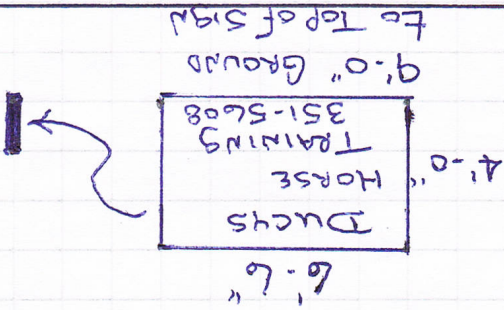 6'-6"
DUCYS
4'-0"
HORSE
TRAINING
351-5608
9'-0" GROUND
to Top of Sign